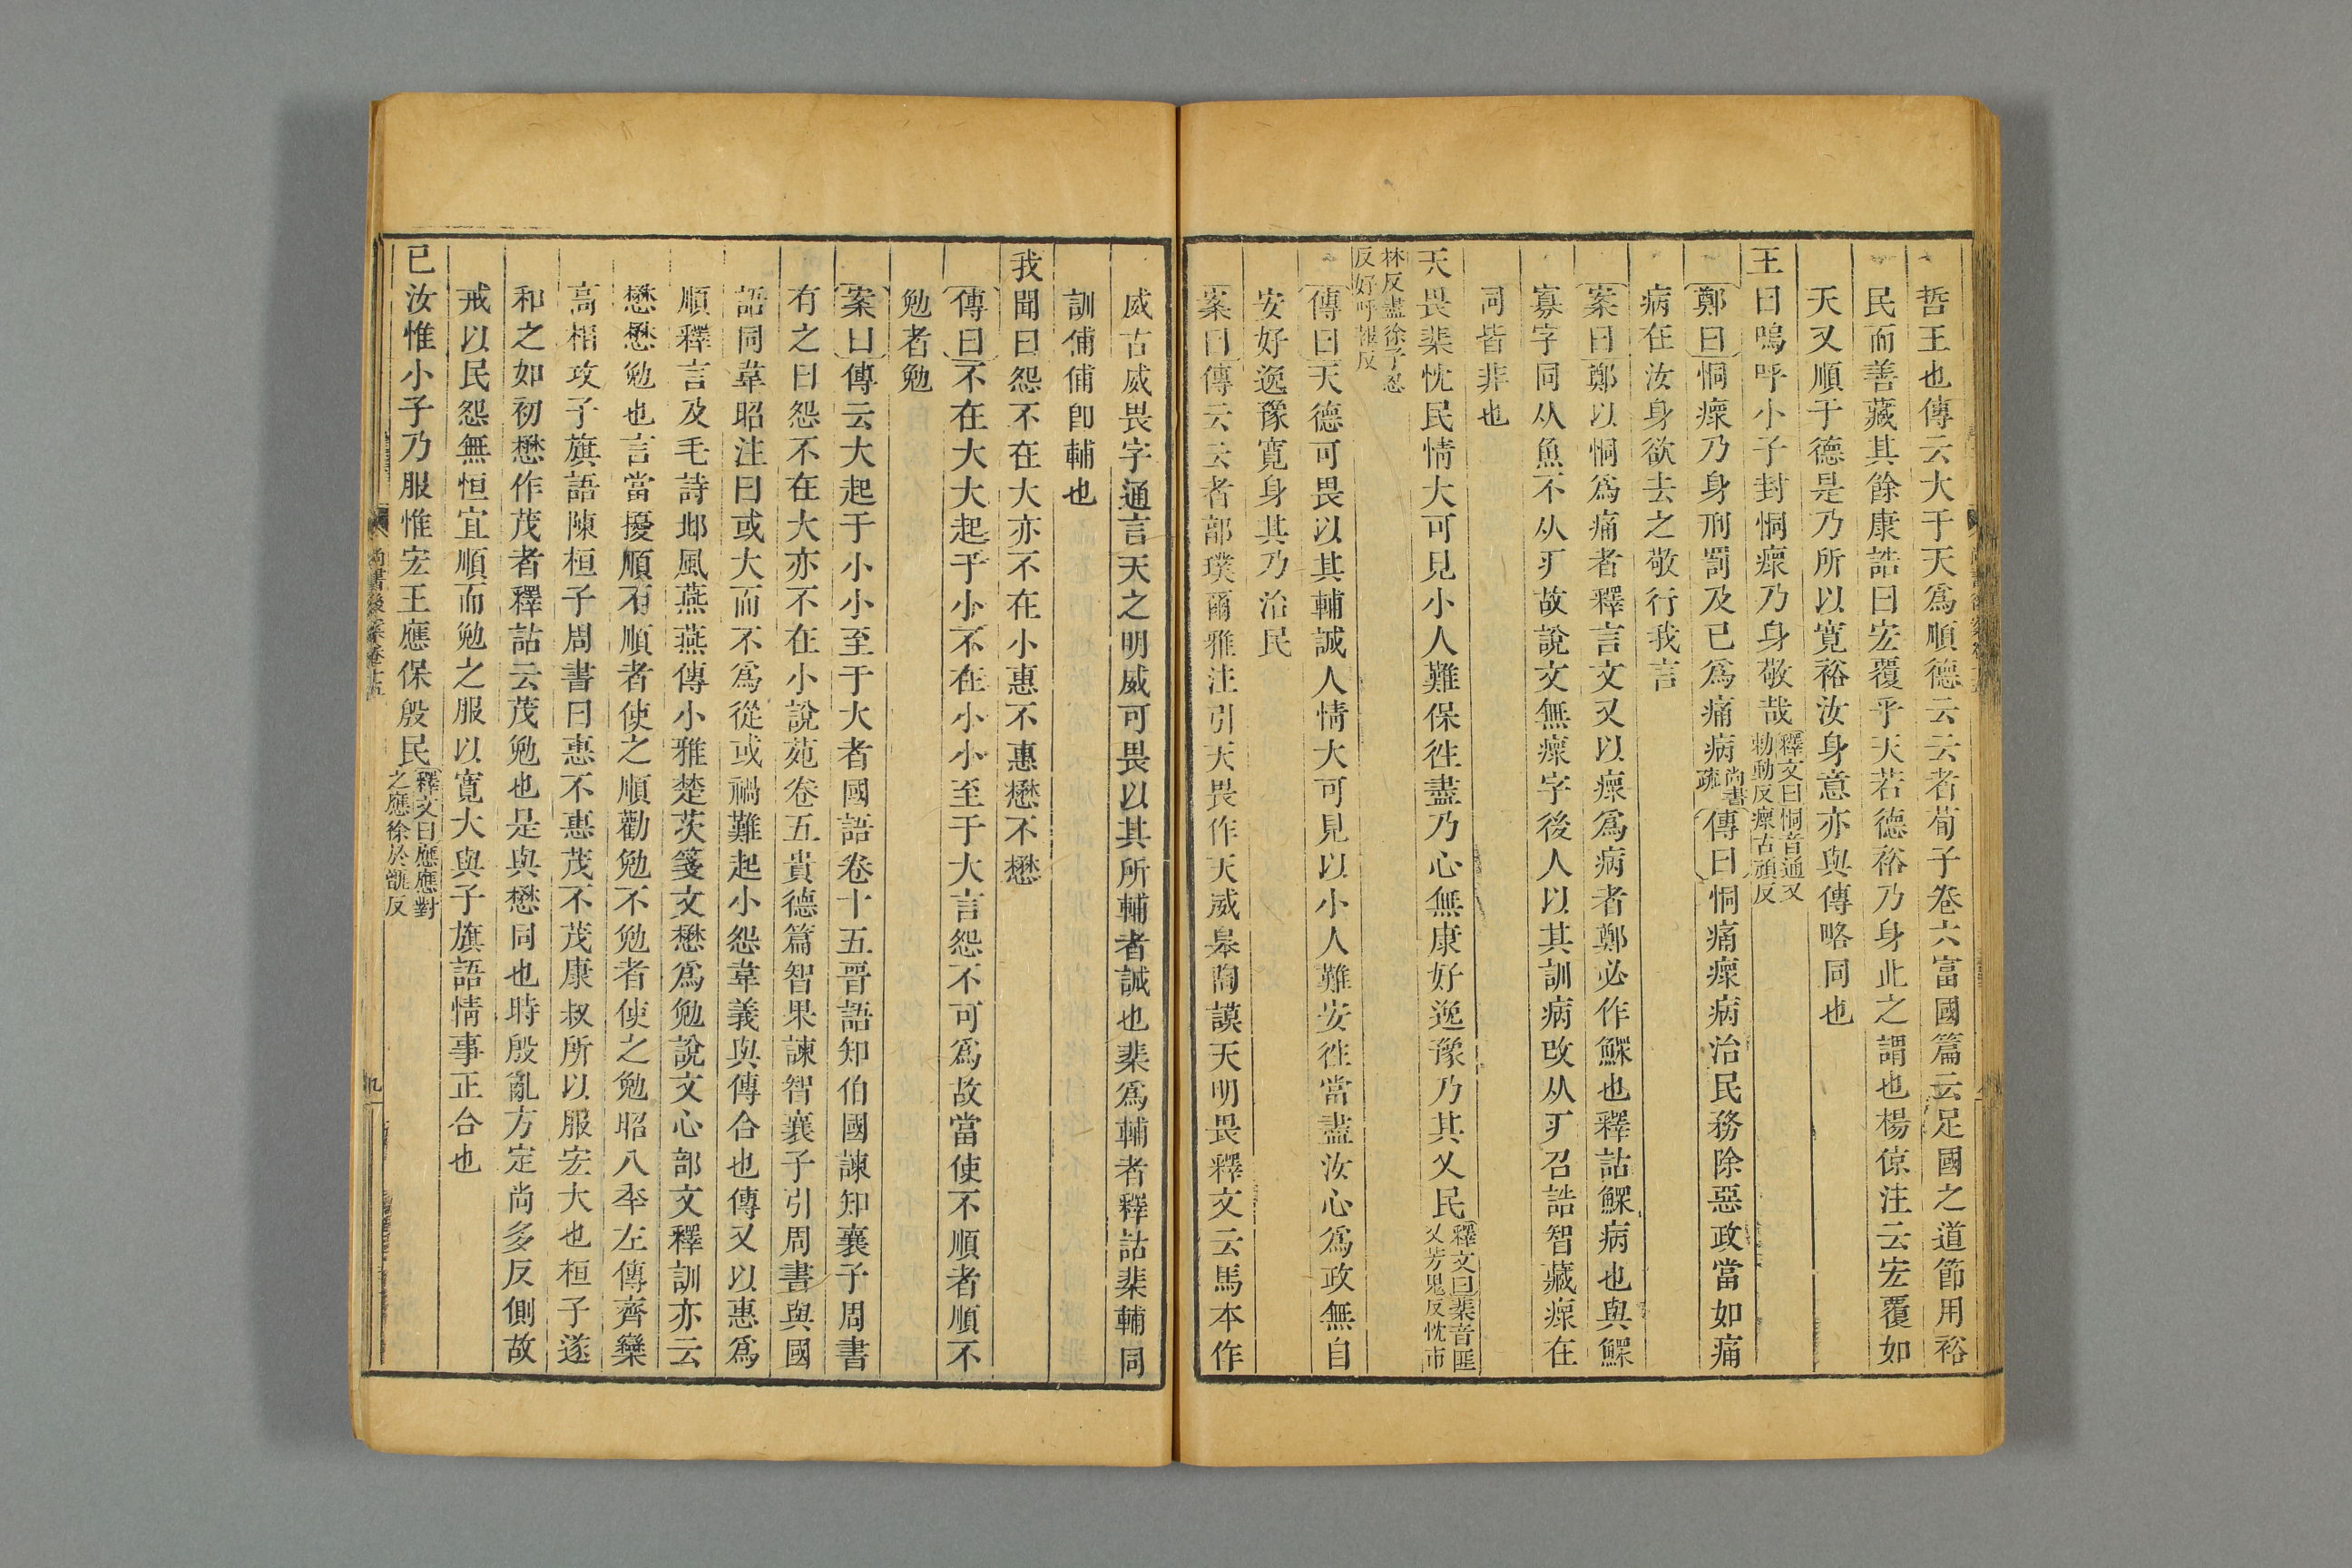 哲王也傳云大于天爲順德云云者荀子卷六富國篇云足國之道節用裕
民而善藏其餘康誥曰宏覆乎天若德裕乃身此之謂也楊倞注云宏覆如
天又順于德是乃所以寬裕汝身意亦與傳略同也
王曰嗚呼小子封恫瘝乃身敬哉釋文曰恫音通又勑動反瘝古頑反
鄭曰恫瘝乃身刑罰及已爲痛病尚書疏傳曰恫痛瘝病治民務除惡政當如痛
病在汝身欲去之敬行我言
案曰鄭以恫爲痛者釋言文又以瘝爲病者鄭必作鰥也釋詁鰥病也與鰥
寡字同从魚不从疒故說文無瘝字後人以其訓病改从疒召誥智藏瘝在
同皆非也
天畏棐忱民情大可見小人難保徃盡乃心無康好逸豫乃其乂民釋文曰棐音匪又芳鬼反忱市
林反盡徐子忍反好呼報反
傳曰天德可畏以其輔誠人情大可見以小人難安徃當盡汝心爲政無自
安好逸豫寬身其乃治民
案曰傳云云者部璞爾雅注引天畏作天威皋陶謨天明畏釋文云馬本作
威古威畏字通言天之明威可畏以其所輔者誠也棐爲輔者釋詁棐輔同
訓俌俌卽輔也
我聞曰怨不在大亦不在小惠不惠懋不懋
傳曰不在大大起于小不在小小至于大言怨不可爲故當使不順者順不
勉者勉
案曰傳云大起于小小至于大者國語卷十五晉語知伯國諫知襄子周書
有之曰怨不在大亦不在小說苑卷五貴德篇智果諫智襄子引周書與國
語同韋昭注曰或大而不爲從或禍難起小怨韋義與傳合也傳又以惠爲
順釋言及毛詩邶風燕燕傳小雅楚茨箋文懋爲勉說文心部文釋訓亦云
懋懋勉也言當擾順不順者使之順勸勉不勉者使之勉昭八年左傳齊欒
高相攻子旗語陳桓子周書曰惠不惠茂不茂康叔所以服宏大也桓子遂
和之如初懋作茂者釋詁云茂勉也是與懋同也時殷亂方定尚多反側故
戒以民怨無恒宜順而勉之服以寬大與子旗語情事正合也
已汝惟小子乃服惟宏王應保殷民釋文曰應應對之應徐於甑反
尚書後案卷十五
九